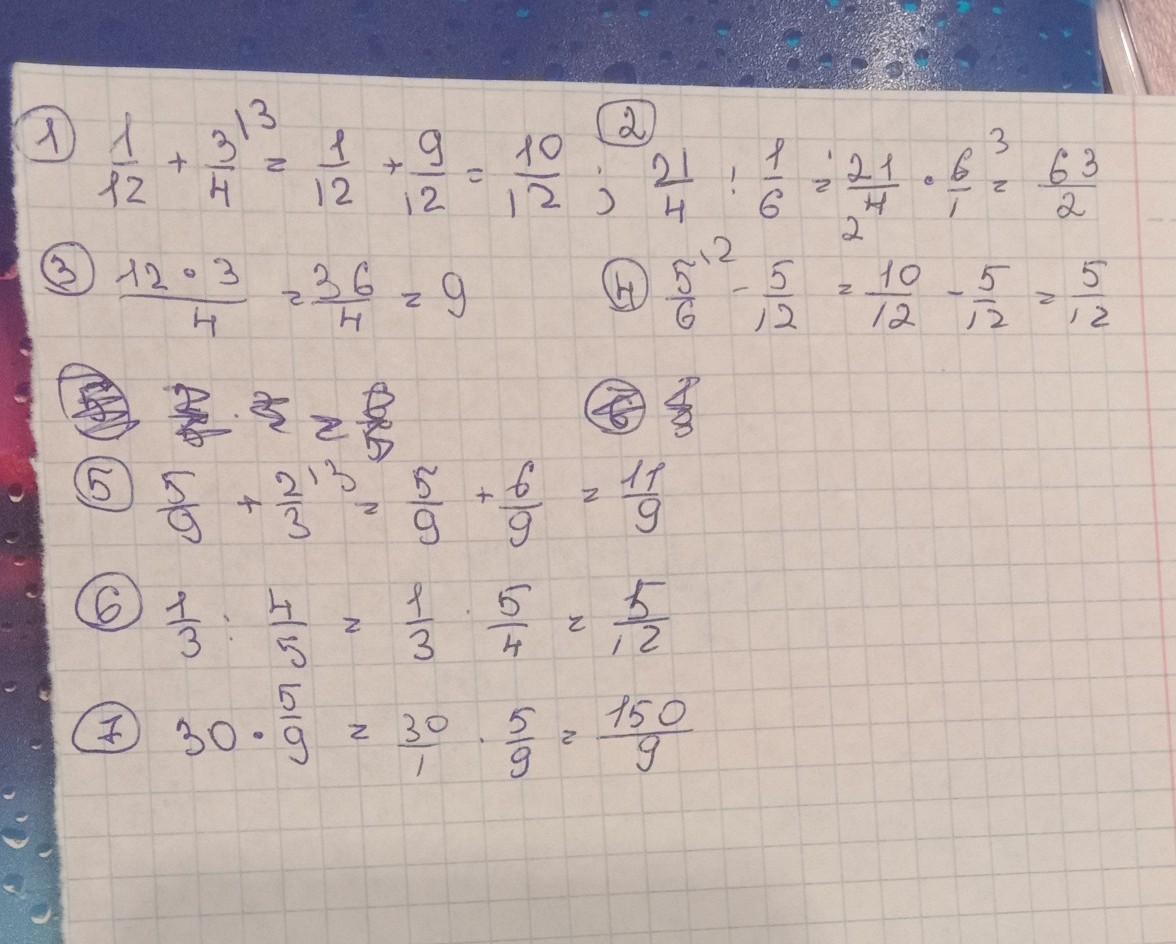 ① 1/12 + 3/4 ^\3 = 1/12 + 9/12 = 10/12 ; ② 21/4 : 1/6 = 21/4 2 · 6/1 3 = 63/2
③ 12 · 3/4 = 36/4 = 9 ④ 5/6 ^\2 - 5/12 = 10/12 - 5/12 = 5/12
⑤ 5/9 + 2/3 ^\3 = 5/9 + 6/9 = 11/9
⑥ 1/3 : 4/5 = 1/3 · 5/4 = 5/12
⑦ 30 · 5/9 = 30/1 · 5/9 = 150/9